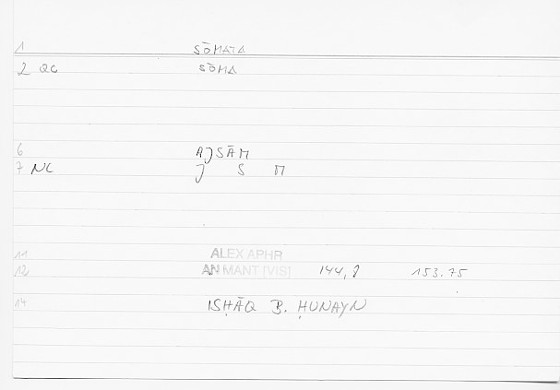 1 SŌMATA
2 QC SŌMA
6 AJSĀM
7 NC J S M
11 ALEX APHR
12 AN MANT (VISI 144,8 153.75
14 ISḤĀQ B. ḤUNAYN